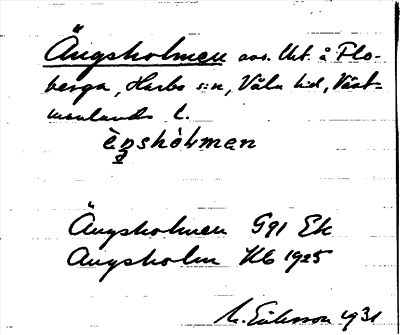 Ängsholmen avs. lht. å Flo-
berga, Harbo s:n, Våla hd, Väst-
manlands l.
èŋshòlmen
Ängsholmen G91 Ek
Ängsholm Hb 1925
M. Eriksson 1931